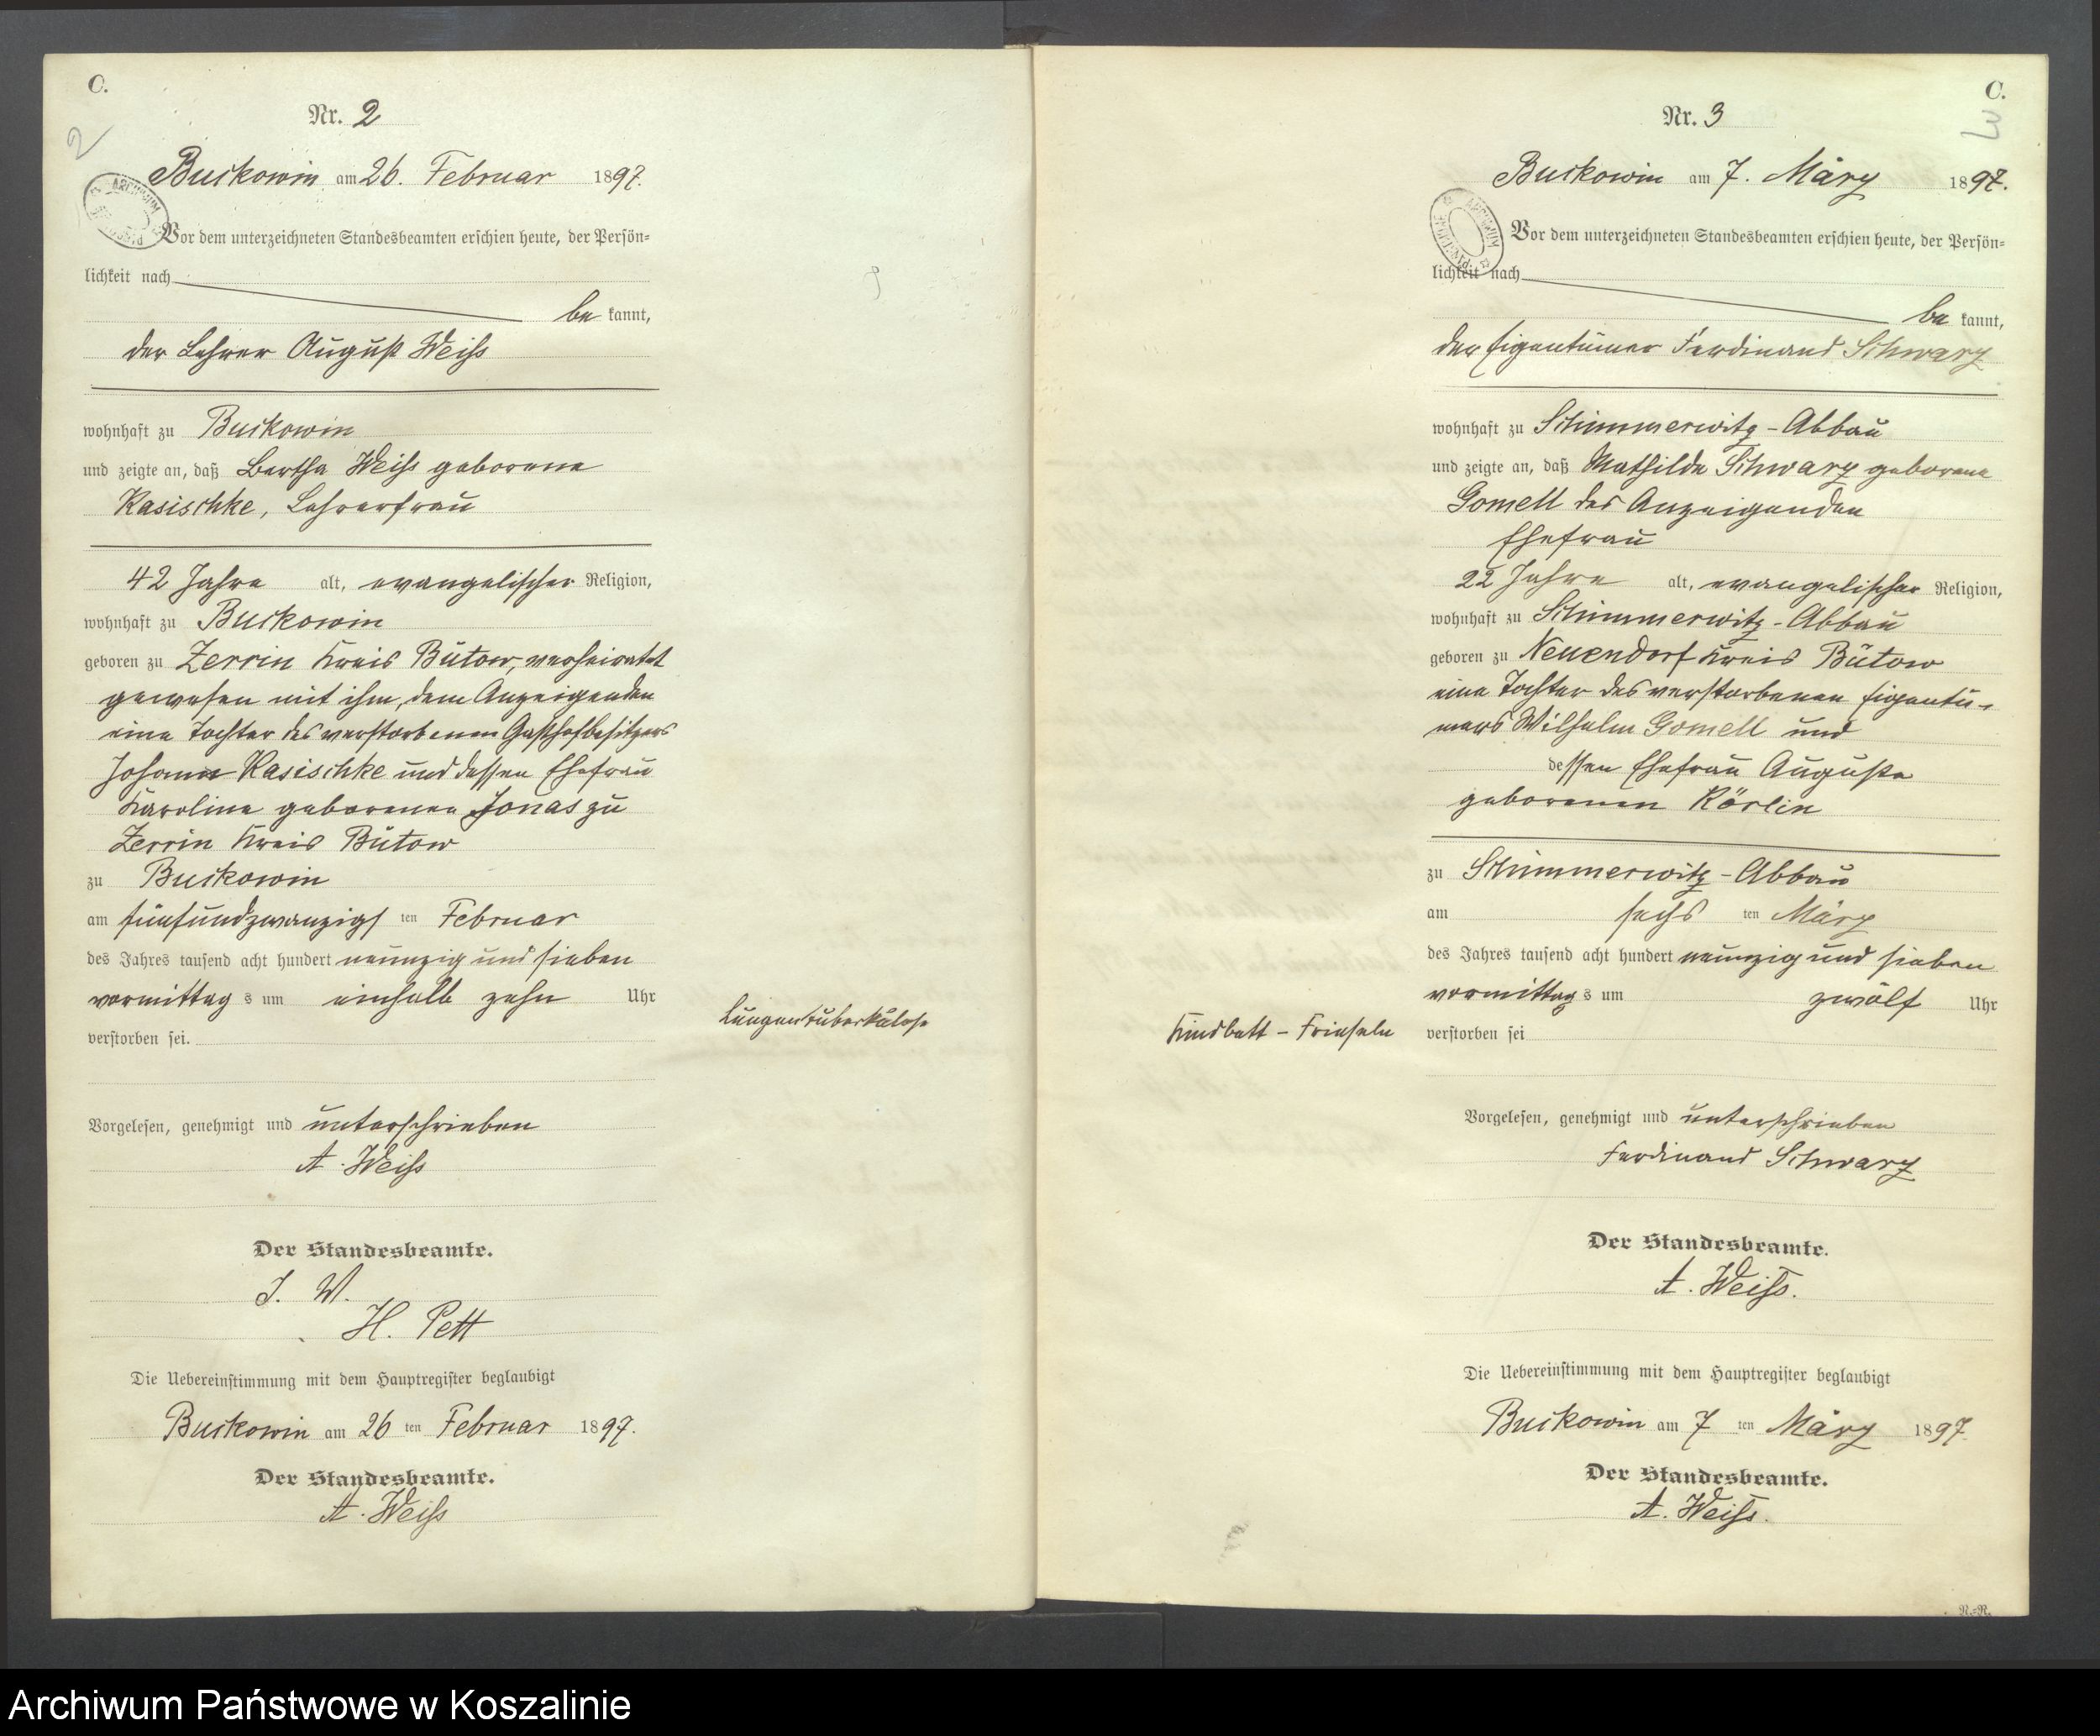 C.
Nr. 2
2
Buckowin am 26. Februar 1897.
Vor dem unterzeichneten Standesbeamten erschien heute, der Persön=
lichkeit nach
be kannt,
der Lehrer August Weiß
wohnhaft zu Buckowin
und zeigte an, daß Bertha Weiß geborene
Kasischke, Lehrerfrau
42 Jahre alt, evangelischer Religion,
wohnhaft zu Buckowin
geboren zu Zerrin Kreis Bütow, verheiratet
gewesen mit ihm, dem Anzeigenden
eine Tochter des verstorbenen Gasthofbesitzers
Johann Kasischke und dessen Ehefrau
Karoline geborenen Jonas zu
Zerrin Kreis Bütow
zu Buckowin
am fünfundzwanzigs ten Februar
des Jahres tausend acht hundert neunzig und sieben
vormittag s um einhalb zehn Uhr
verstorben sei.
Lungentuberkulose
Vorgelesen, genehmigt und unterschrieben
A. Weiß
Der Standesbeamte.
J. V.
H. Pett
Die Uebereinstimmung mit dem Hauptregister beglaubigt
Buckowin am 26 ten Februar 1897.
Der Standesbeamte.
A. Weiß
C.
Nr. 3
Buckowin am 7. März 1897.
ARCHIWUM
Vor dem unterzeichneten Standesbeamten erschien heute, der Persön=
lichkeit nach
be kannt,
der Eigentümer Ferdinand Schwarz
wohnhaft zu Schimmerwitz-Abbau
und zeigte an, daß Mathilde Schwarz geborene
Gomell des Anzeigenden
Ehefrau
22 Jahre alt, evangelischer Religion,
wohnhaft zu Schimmerwitz-Abbau
geboren zu Neuendorf Kreis Bütow
eine Tochter des verstorbenen Eigentü-
mers Wilhelm Gomell und
dessen Ehefrau Auguste
geborenen Körlin
zu Schimmerwitz-Abbau
am sechs ten März
des Jahres tausend acht hundert neunzig und sieben
vormittag s um zwölf Uhr
Kindbett-Frieseln verstorben sei
Vorgelesen, genehmigt und unterschrieben
Ferdinand Schwarz
Der Standesbeamte.
A. Weiß.
Die Uebereinstimmung mit dem Hauptregister beglaubigt
Buckowin am 7 ten März 1897
Der Standesbeamte.
A. Weiß.
R.=R.
Archiwum Państwowe w Koszalinie